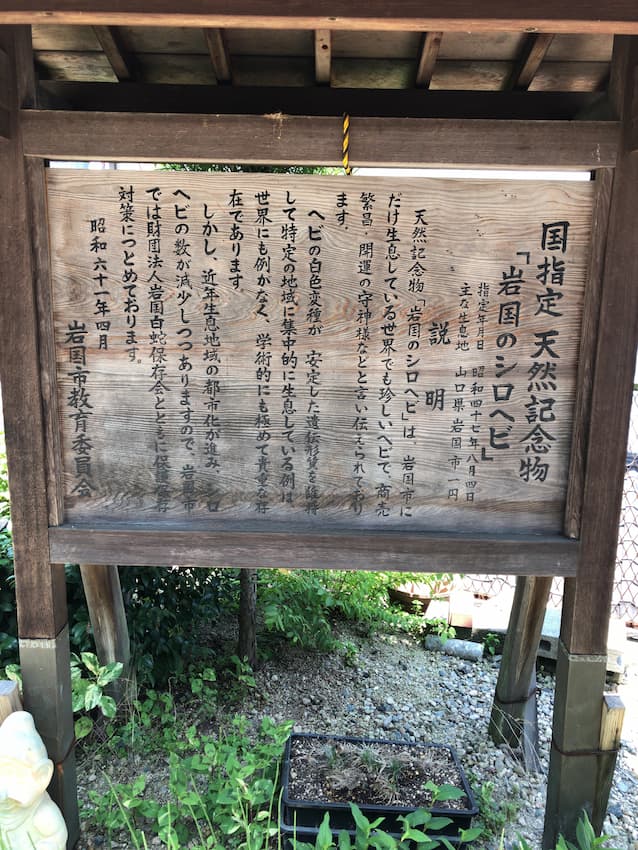 国指定 天然記念物
「岩国のシロヘビ」
指定年月日 昭和四十七年八月四日
主な生息地 山口県岩国市一円
説明
天然記念物「岩国のシロヘビ」は、岩国市に
だけ生息している世界でも珍しいヘビで、商売
繁昌、開運の守神様などと言い伝えられており
ます。
ヘビの白色変種が、安定した遺伝形質を維持
して特定の地域に集中的に生息している例は
世界にも例がなく、学術的にも極めて貴重な存
在であります。
しかし、近年生息地域の都市化が進み、シロ
ヘビの数が減少しつつありますので、岩国市
では財団法人岩国白蛇保存会とともに保護保存
対策につとめております。
昭和六十一年四月
岩国市教育委員会